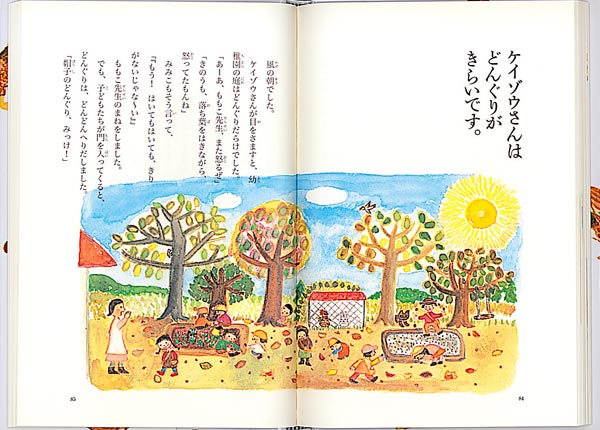 ケイゾウさんは
どんぐりが
きらいです。
風の朝でした。
ケイゾウさんが目をさますと、幼
稚園の庭はどんぐりだらけでした。
「あーあ、ももこ先生、また怒るぜ」
「きのうも、落ち葉をはきながら、
怒ってたもんね」
みみこもそう言って、
「もう！ はいてもはいても、きり
がないじゃな〜い」
ももこ先生のまねをしました。
でも、子どもたちが門を入ってくると、
どんぐりは、どんどんへりだしました。
「帽子のどんぐり、みっけ！」
85
84